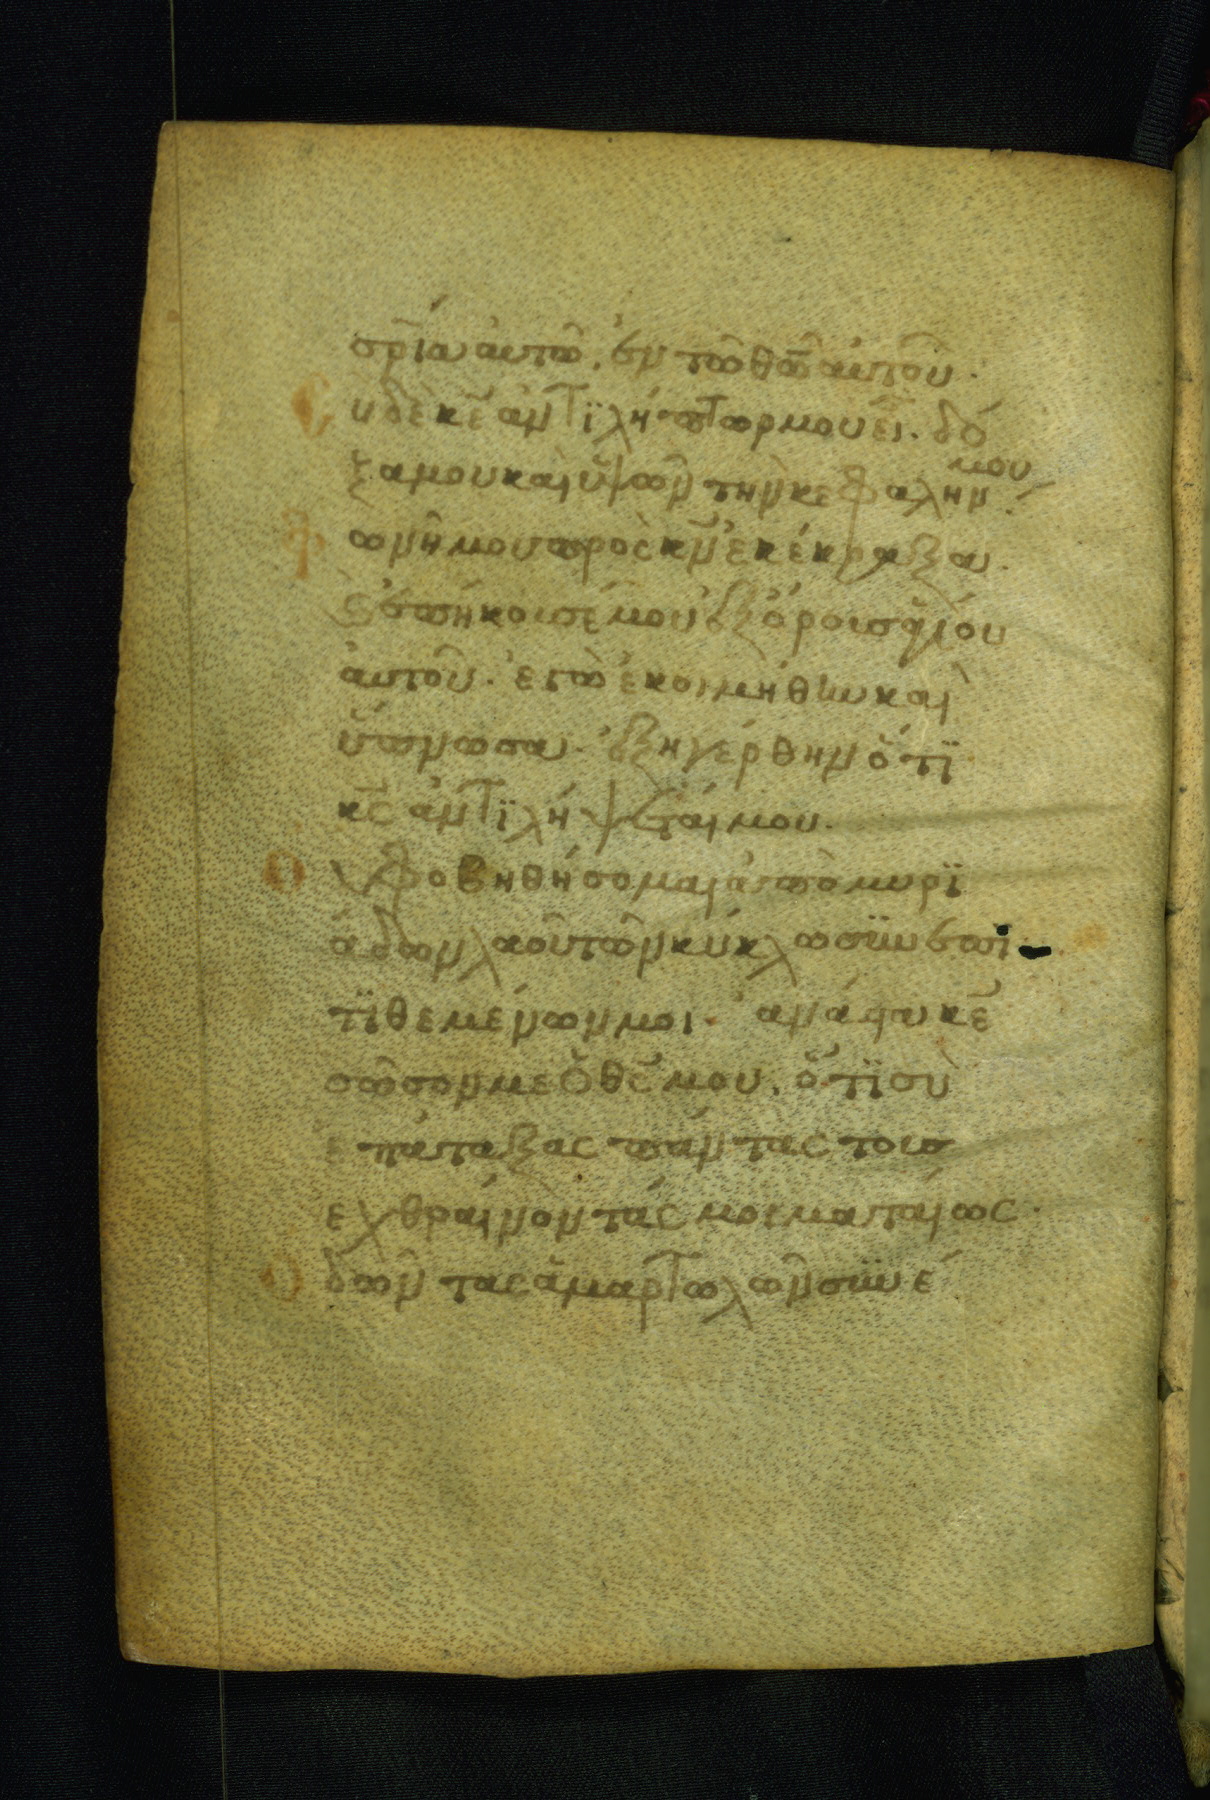 σρῖα αυτῶ. ἐν τῶ θῶ αυτοῦ.
Σ υ δὲ κε̄ ἀντϊλήπτωρ μου εἶ. δό
ξα μου καὶ ὑψῶν τὴν κεφαλήν μου.
Φ ωνῆ μου πρὸς κν̄ ἐκέκραξα.
ἐπήκουσέ μου ἐξ ὄρους ἁγίου
ἀυτοῦ. ἐγὼ ἐκοιμήθην καὶ
ὕπνωσα. ἐξηγέρθην ὅτϊ
κς̄ ἀντϊλήψεταί μου.
Ο υ φοβηθήσομαι ἀπὸ μυρϊ
άδων λαοῦ τῶν κύκλω συνεπι
τϊθεμένων μοι. ἀνάστα κε̄
σῶσον με ὁ θς̄ μου. ὅτϊ σὺ
επάταξας πάντας τους
εχθραίνοντάς μοι ματαίως.
Ο δῶντας ἁμαρτωλῶν συνέ